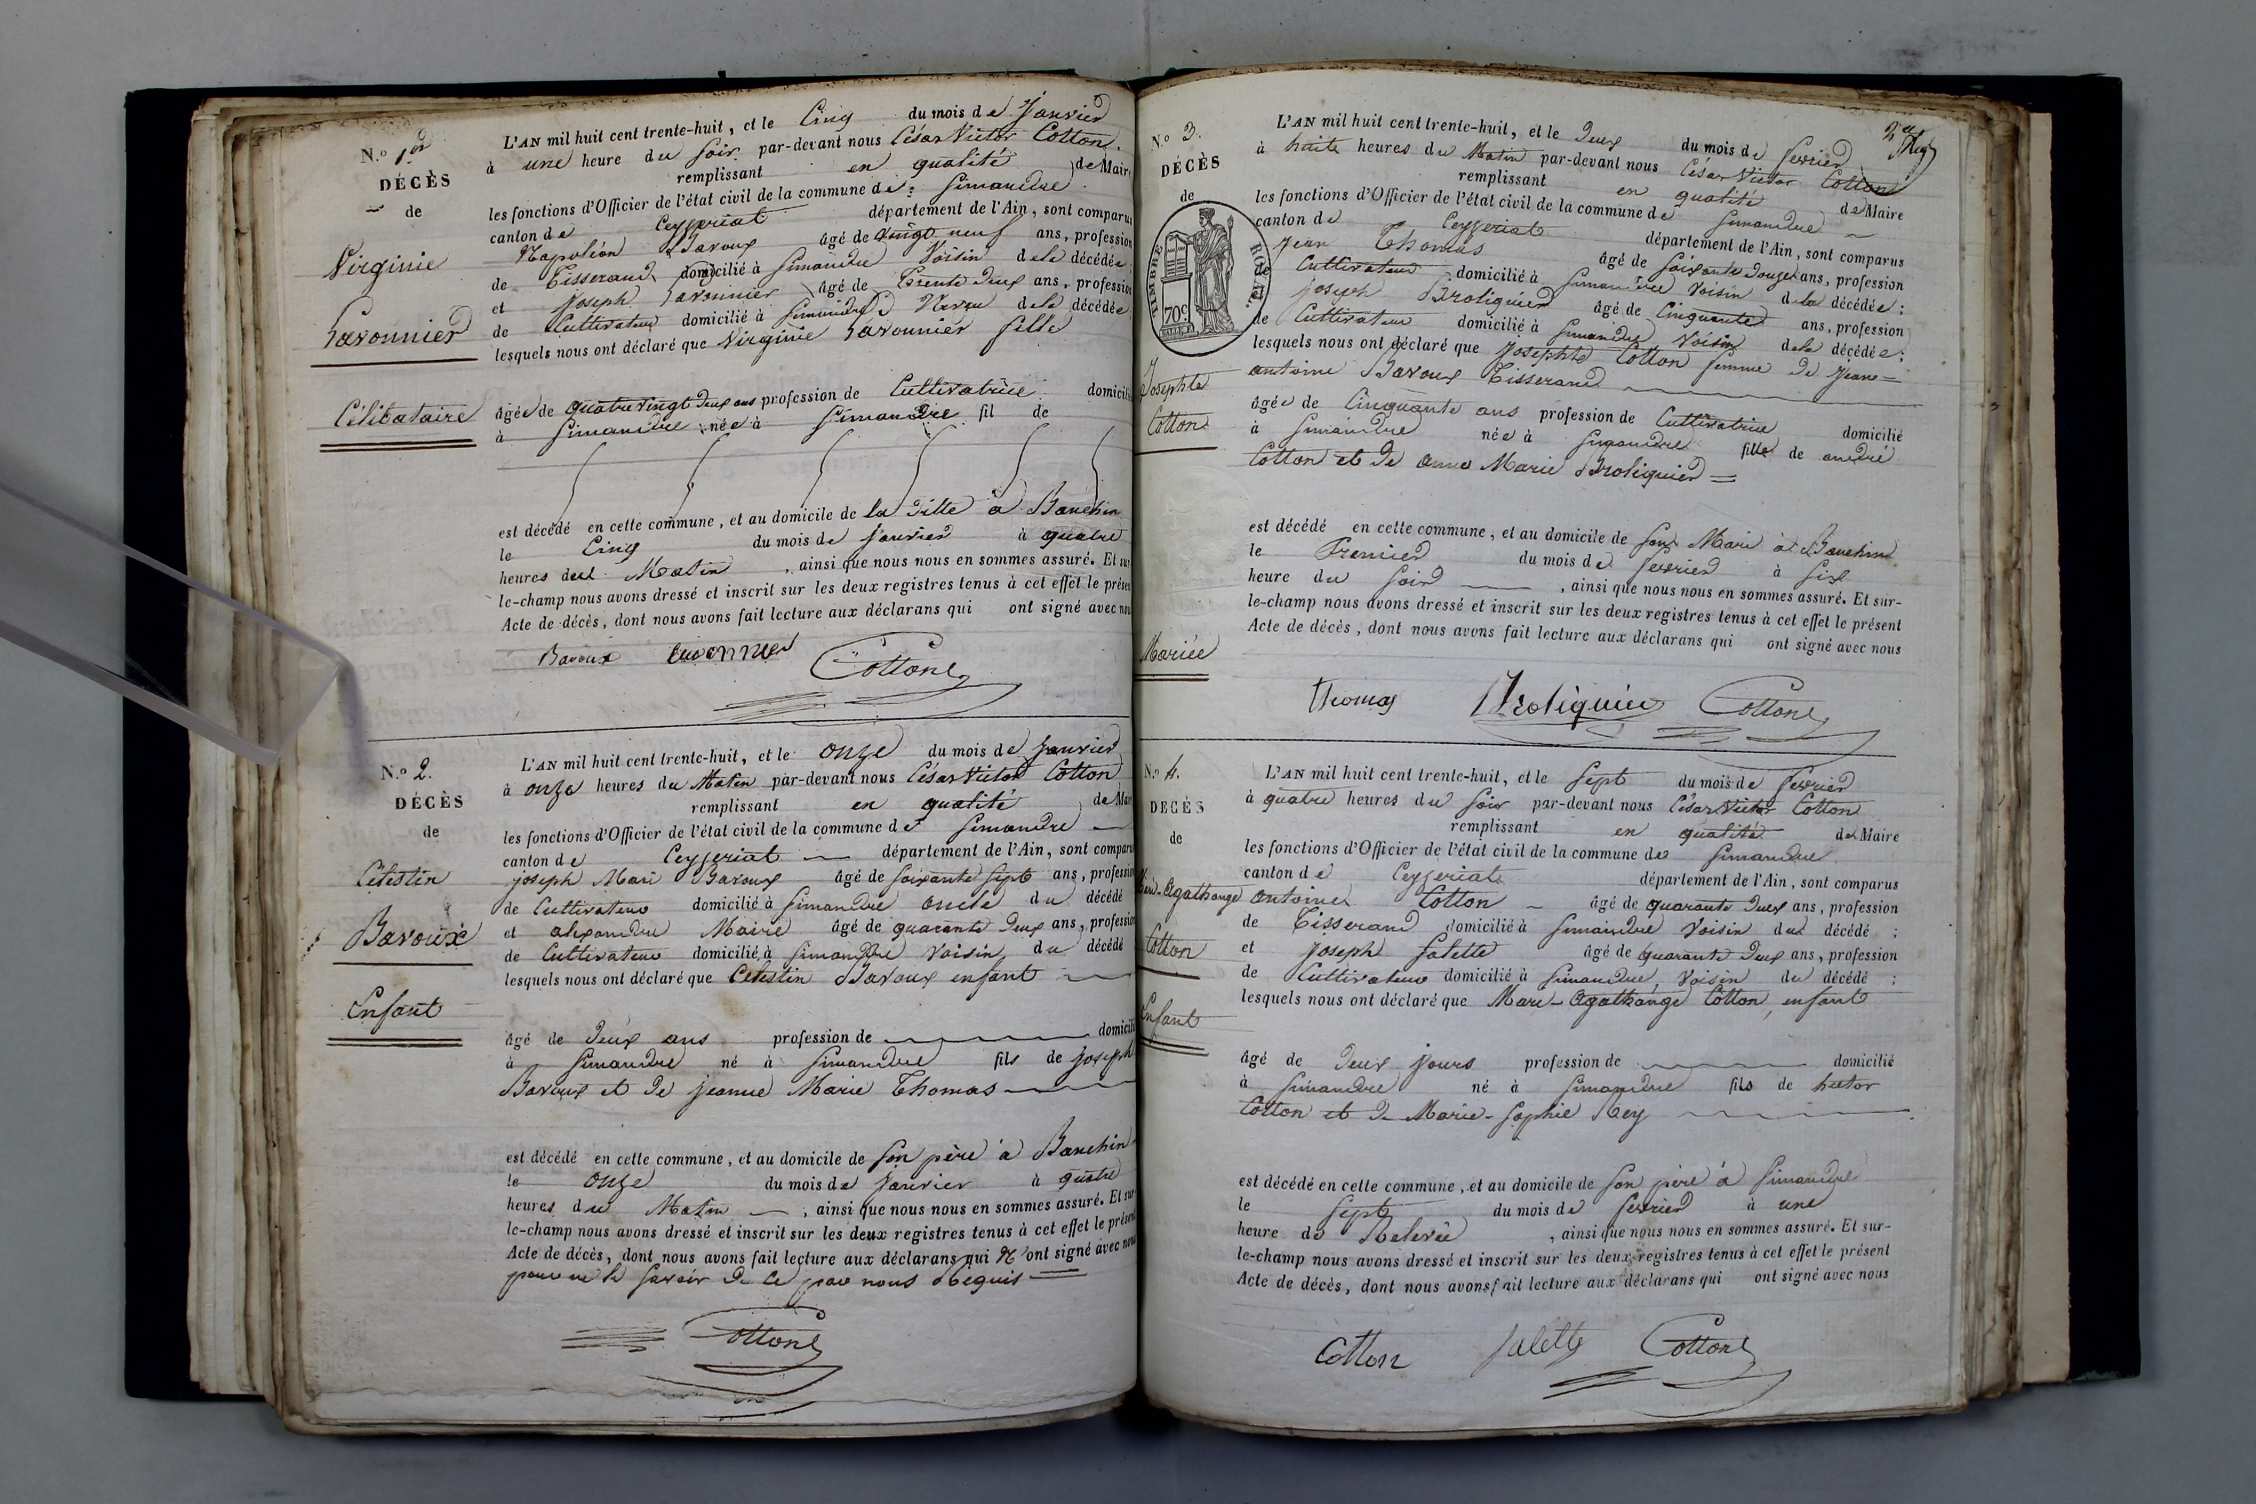 N.o 1er
DÉCÈS
de
Virginie
Lavonnier
Célibataire
L'AN mil huit cent trente-huit, et le Cinq du mois de Janvier
à une heure du soir par-devant nous César Victor Cotton
remplissant en qualité de Maire
les fonctions d'Officier de l'état civil de la commune de Simandre
canton de Ceyzeriat département de l'Ain, sont comparus
Napoléon Bavoux âgé de vingt neuf ans, profession
de Tisserand domicilié à Simandre Voisin dela décédée
et Joseph Lavonnier âgé de trente deux ans, profession
de Cultivateur domicilié à Simandre Neveu dela décédée
lesquels nous ont déclaré que Virginie Lavonnier fille
âgée de quatre vingt deux ans profession de Cultivatrice domicili
à Simandre née à Simandre fil de
est décédé en cette commune, et au domicile de la ditte à Banchin
le Cinq du mois de Janvier à quatre
heures du Matin, ainsi que nous nous en sommes assuré. Et sur
le-champ nous avons dressé et inscrit sur les deux registres tenus à cet effet le présen
Acte de décès, dont nous avons fait lecture aux déclarans qui ont signé avec nou
Bavoux Lavonnier Cotton
N.o 2.
DÉCÈS
de
Celestin
Bavoux
Enfant
L'AN mil huit cent trente-huit, et le onze du mois de Janvier
à onze heures du Matin par-devant nous César Victor Cotton
remplissant en qualité de Mai
les fonctions d'Officier de l'état civil de la commune de Simandre
canton de Ceyzeriat département de l'Ain, sont comparu
joseph Mari Bavoux âgé de soixante sept ans, profession
de Cultivateur domicilié à Simandre oncle du décédé
et alexandre Maire âgé de quarante deux ans, profession
de Cultivateur domicilié à Simandre Voisin du décédé
lesquels nous ont déclaré que Celestin Bavoux enfant
âgé de Deux ans profession de domicili
à Simandre né à Simandre fils de joseph
Bavoux et de jeanne Marie Thomas
est décédé en cette commune, et au domicile de son père à Banchin
le onze du mois de Janvier à quatre
heures du Matin, ainsi que nous nous en sommes assuré. Et sur
le-champ nous avons dressé et inscrit sur les deux registres tenus à cet effet le présen
Acte de décès, dont nous avons fait lecture aux déclarans qui N'ont signé avec nou
pour ne le savoir de ce par nous Requis
Cotton
2e
N.o 3.
DÉCÈS
de
TIMBRE ROYAL
70c.
Josephte
Cotton
Mariée
L'AN mil huit cent trente-huit, et le Deux du mois de fevrier
à huite heures du Matin par-devant nous César Victor Cotton
remplissant en qualité de Maire
les fonctions d'Officier de l'état civil de la commune de Simandre
canton de Ceyzeriat département de l'Ain, sont comparus
Jean Thomas âgé de soixante douze ans, profession
de Cultivateur domicilié à Simandre Voisin dela décédée;
joseph Broliquier âgé de Cinquante ans, profession
de Cultivateur domicilié à Simandre Voisin dela décédée;
lesquels nous ont déclaré que Josephte Cotton femme de Jean=
antoine Bavoux Tisserand
âgée de Cinquante ans profession de Cultivatrice domicilié
à Simandre née à Simandre fille de andré
Cotton et de anne Marie Broliquier =
est décédé en cette commune, et au domicile de son Mari à Banchin
le Premier du mois de fevrier à six
heure du soir, ainsi que nous nous en sommes assuré. Et sur-
le-champ nous avons dressé et inscrit sur les deux registres tenus à cet effet le présent
Acte de décès, dont nous avons fait lecture aux déclarans qui ont signé avec nous
Thomas Broliquier Cotton
N.o 4.
DÉCÈS
de
Marc-Agathange
Cotton
Enfant
L'AN mil huit cent trente-huit, et le Sept du mois de fevrier
à quatre heures du soir par-devant nous César Victor Cotton
remplissant en qualité de Maire
les fonctions d'Officier de l'état civil de la commune de Simandre
canton de Ceyzeriat département de l'Ain, sont comparus
antoine Cotton âgé de quarante deux ans, profession
de Tisserand domicilié à Simandre Voisin du décédé;
et joseph Salette âgé de quarante deux ans, profession
de Cultivateur domicilié à Simandre, voisin du décédé;
lesquels nous ont déclaré que Marc-Agathange Cotton, enfant
âgé de Deux jours profession de domicilié
à Simandre né à Simandre fils de hector
Cotton et de Marie-Sophie Rey
est décédé en cette commune, et au domicile de son père à Simandre
le Sept du mois de fevrier à une
heure de Relevée, ainsi que nous nous en sommes assuré. Et sur-
le-champ nous avons dressé et inscrit sur les deux registres tenus à cet effet le présent
Acte de décès, dont nous avons fait lecture aux déclarans qui ont signé avec nous
Cotton Salette Cotton